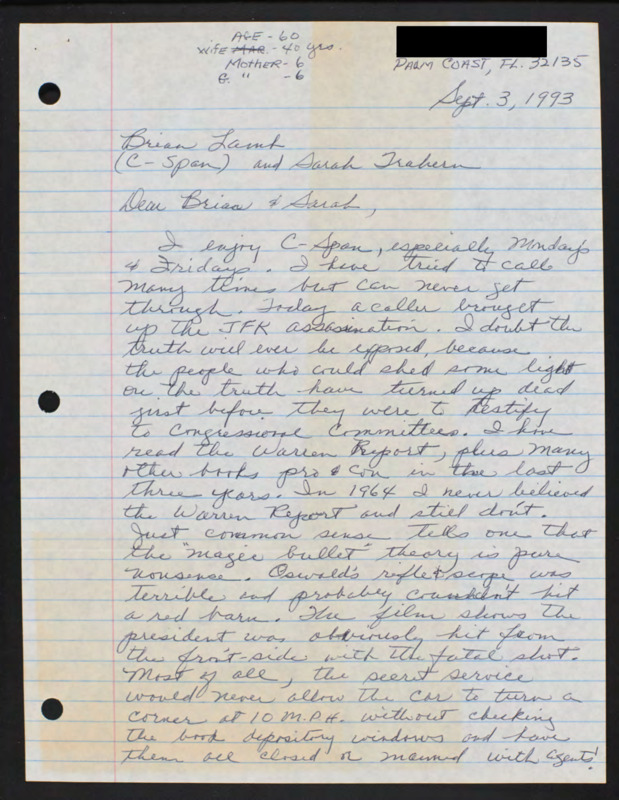 AGE - 60
WIFE MAR. - 40 yrs.
MOTHER - 6
G. " - 6
PALM COAST, FL. 32135
Sept. 3, 1993
Brian Lamb
(C-Span) and Sarah Trahern
Dear Brian & Sarah,
I enjoy C-Span, especially Mondays
& Fridays. I have tried to call
many times but can never get
through. Today a caller brouget
up the JFK assasination. I doubt the
truth will ever be exposed, because
the people who could shed some light
on the truth have turned up dead
just before they were to testify
to Congressional Committees. I have
read the Warren Report, plus many
other books pro & con in the last
three years. In 1964 I never believed
the Warren Report and still don't.
Just common sense tells one that
the "magic bullet" theory is pure
nonsense. Oswald's rifle & scope was
terrible and probabley couldn't hit
a red barn. The film shows the
president was obviously hit from
the front-side with the fatal shot.
Most of all, the secret service
would never allow the car to turn a
corner at 10 M.P.H. without checking
the book depository windows and have
them all closed or manned with agents!